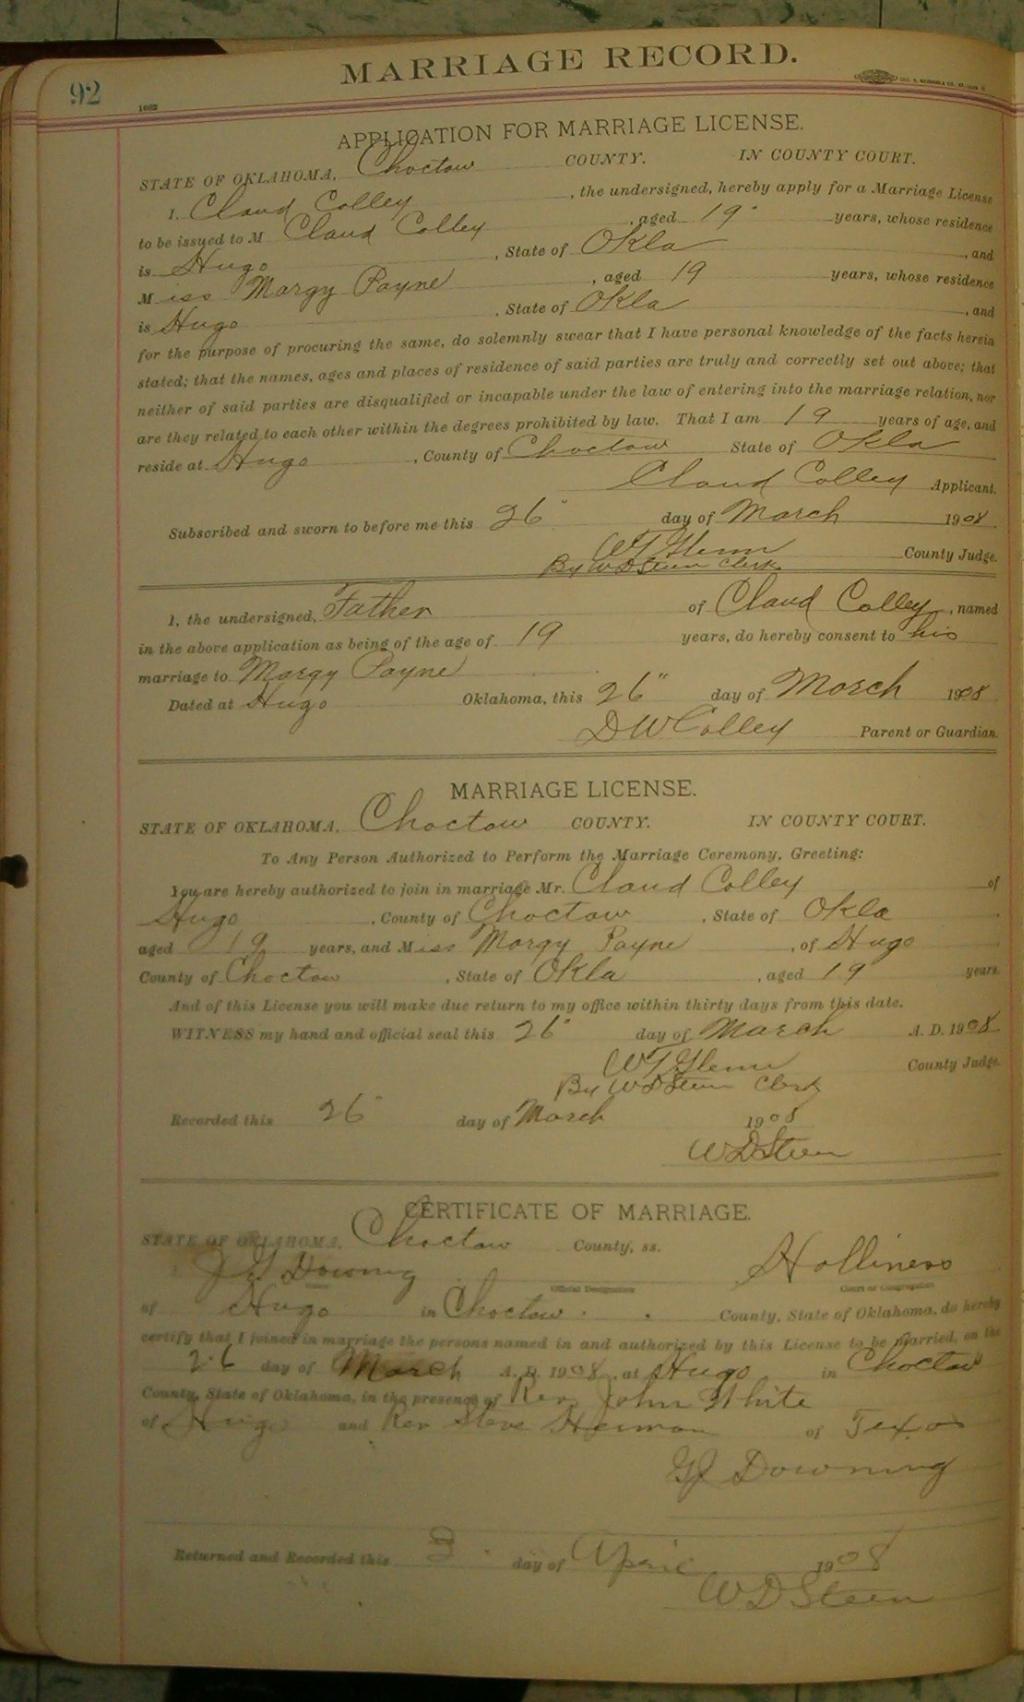 92
MARRIAGE RECORD.
1082
APPLICATION FOR MARRIAGE LICENSE.
STATE OF OKLAHOMA, Choctaw COUNTY. IN COUNTY COURT.
I, Claud Colley, the undersigned, hereby apply for a Marriage License
to be issued to M Claud Colley, aged 19 years, whose residence
is Hugo, State of Okla, and
Miss Margy Payne, aged 19 years, whose residence
is Hugo, State of Okla, and
for the purpose of procuring the same, do solemnly swear that I have personal knowledge of the facts herein
stated; that the names, ages and places of residence of said parties are truly and correctly set out above; that
neither of said parties are disqualified or incapable under the law of entering into the marriage relation, nor
are they related to each other within the degrees prohibited by law. That I am 19 years of age, and
reside at Hugo, County of Choctaw State of Okla
Claud Colley Applicant.
Subscribed and sworn to before me this 26" day of March 1908
WT Glenn County Judge.
By WD Steen Clerk
I, the undersigned, Father of Claud Colley, named
in the above application as being of the age of 19 years, do hereby consent to his
marriage to Margy Payne
Dated at Hugo Oklahoma, this 26" day of March 1908
DW Colley Parent or Guardian.
MARRIAGE LICENSE.
STATE OF OKLAHOMA, Choctaw COUNTY. IN COUNTY COURT.
To Any Person Authorized to Perform the Marriage Ceremony, Greeting:
You are hereby authorized to join in marriage Mr. Claud Colley of
Hugo, County of Choctaw, State of Okla,
aged 19 years, and Miss Margy Payne, of Hugo
County of Choctaw, State of Okla, aged 19 years.
And of this License you will make due return to my office within thirty days from this date.
WITNESS my hand and official seal this 26" day of March A. D. 1908
WT Glenn County Judge.
By WD Steen Clerk
Recorded this 26" day of March 1908
WD Steen
CERTIFICATE OF MARRIAGE.
STATE OF OKLAHOMA, Choctaw County, ss.
Downing Official Designation Holliness
of Hugo in Choctaw County, State of Oklahoma, do hereby
certify that I joined in marriage the persons named in and authorized by this License to be married, on the
26 day of March A. D. 1908, at Hugo in Choctaw
County, State of Oklahoma, in the presence of Rev John White
of Hugo and Rev Steve of Texas
GJ Downing
Returned and Recorded this 2 day of April 1908
WD Steen